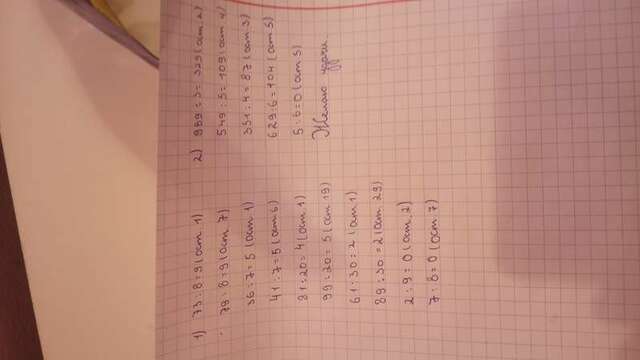 1) 73:8=9(ост 1)
79:8=9(ост 7)
36:7=5(ост 1)
41:7=5(ост 6)
81:20=4(ост 1)
99:20=5(ост 19)
61:30=2(ост 1)
89:30=2(ост 29)
2:9=0(ост 2)
7:8=0(ост 7)
2) 989:3=329(ост 2)
549:5=109(ост 4)
351:4=87(ост 3)
629:6=104(ост 5)
5:6=0(ост 5)
Желаю удачи